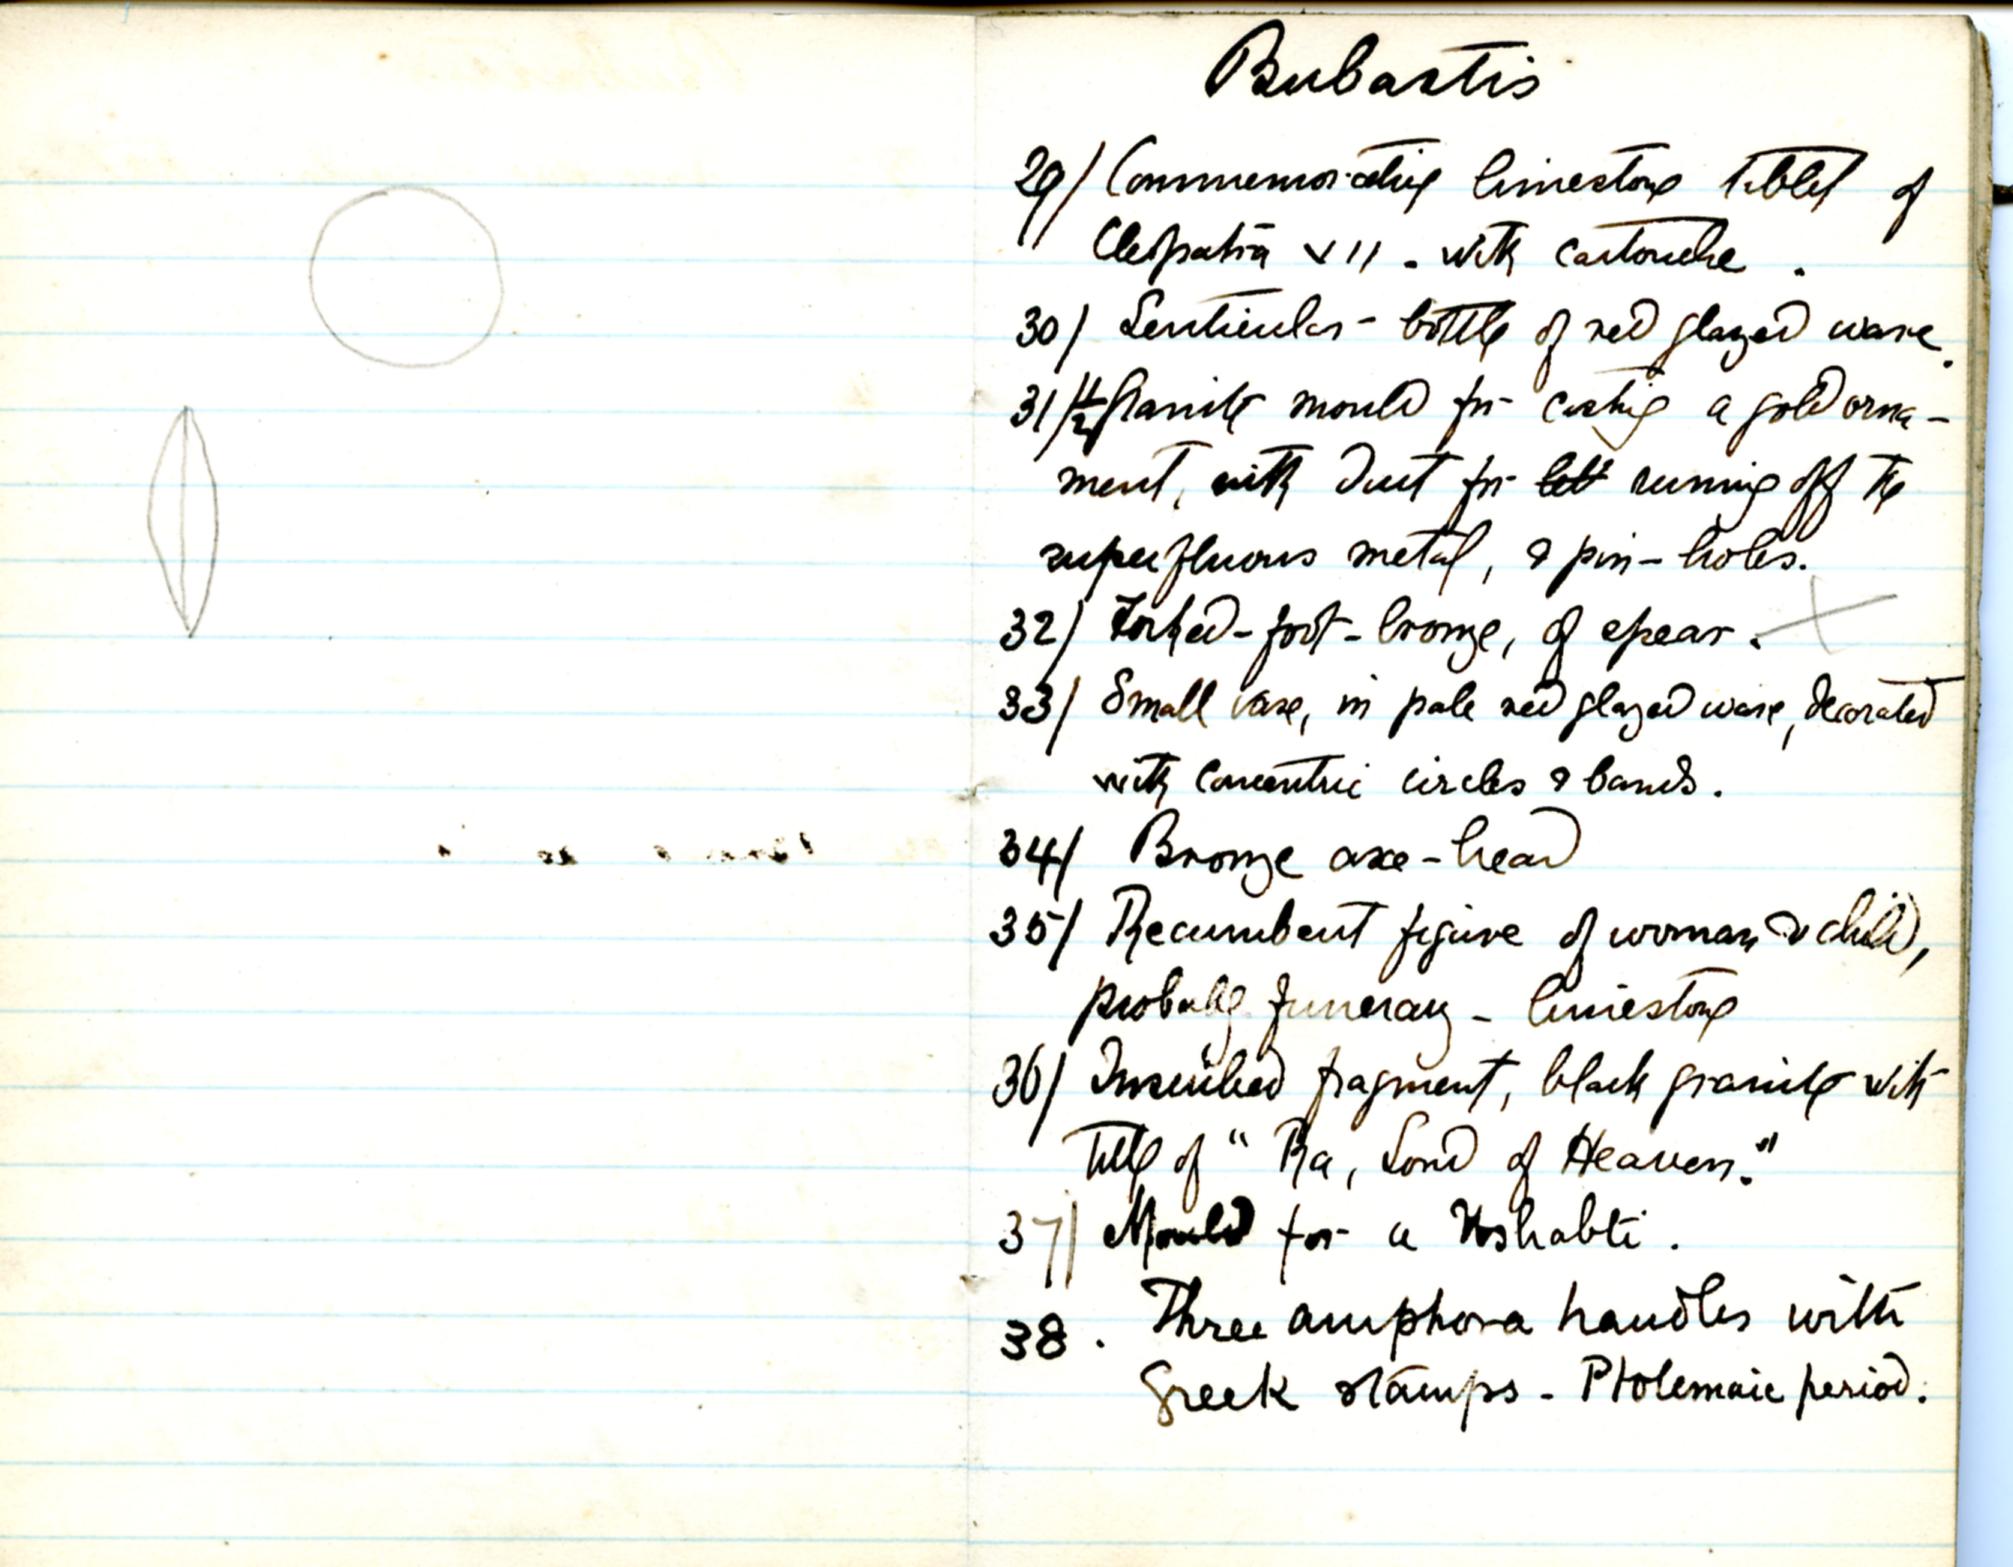 Bubastis
29/ Commemorative limestone tablet of
Cleopatra VII - with cartouche .
30/ Lenticular - bottle of red glazed ware.
31/ 1/2 Granite mould for casting a gold orna-
ment, with duct for running off the
superfluous metal, & pin-holes.
32/ Forked-foot-bronze, of spear. X
33/ Small vase, in pale red glazed ware, decorated
with concentric circles & bands.
34/ Bronze axe-head
35/ Recumbent figure of woman & child,
probably funerary - limestone
36/ Inscribed fragment, black granite with
title of "Ra, Lord of Heaven."
37/ Mould for a Ushabti.
38. Three amphora handles with
Greek stamps - Ptolemaic period.